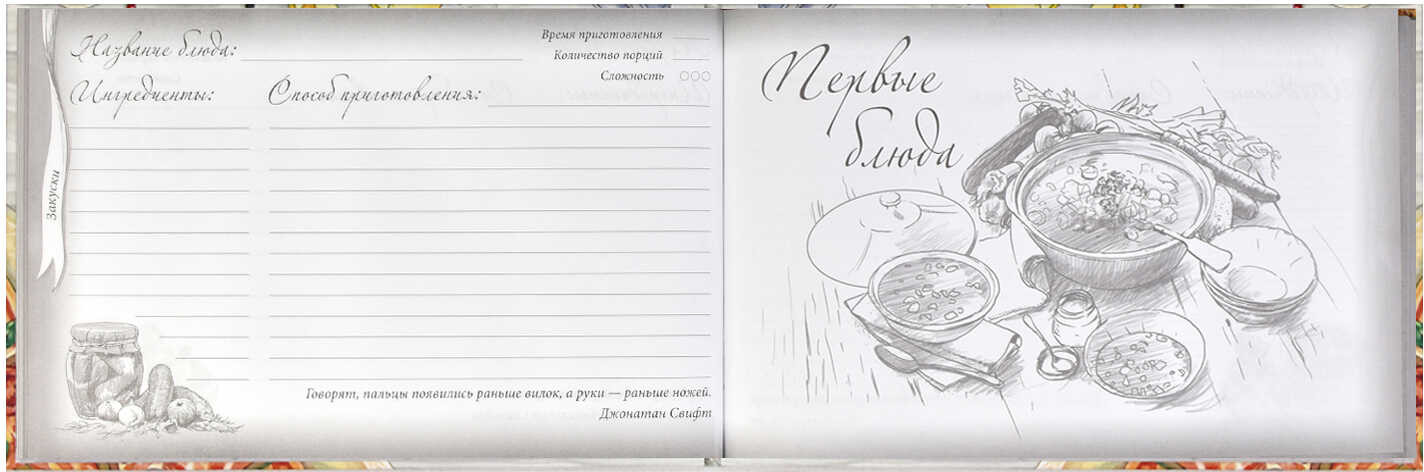 Название блюда:
Время приготовления
Количество порций
Сложность
Ингредиенты:
Способ приготовления:
Закуски
Говорят, пальцы появились раньше вилок, а руки — раньше ножей.
Джонатан Свифт
Первые
блюда